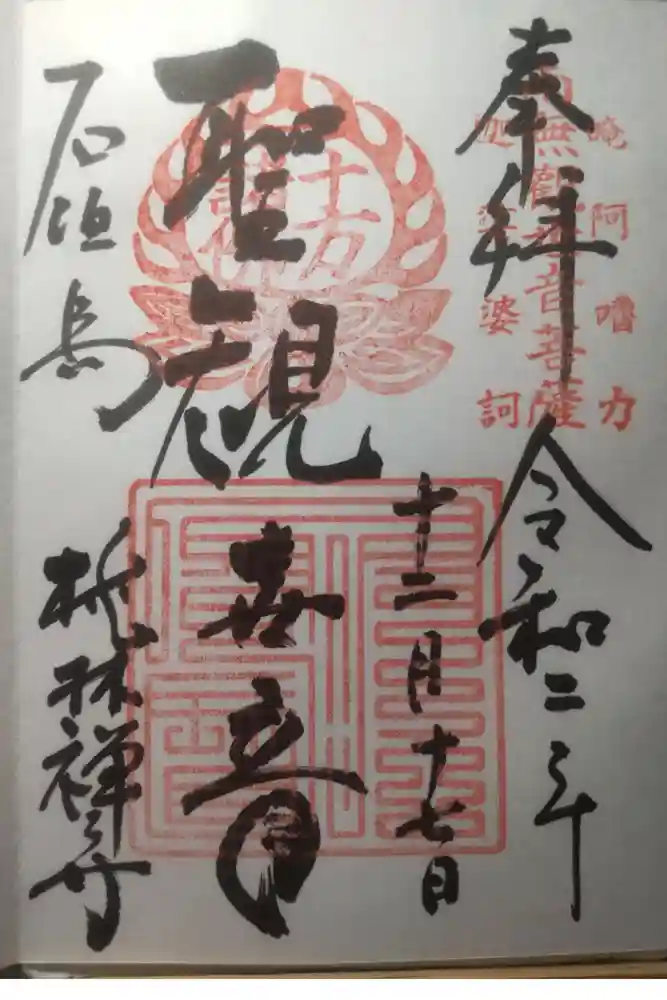 奉拝
令和二年
十二月十七日
唵阿嚕力
南無觀世音菩薩
迦娑婆訶
十方
聖観世音
石垣島
桃林禅寺